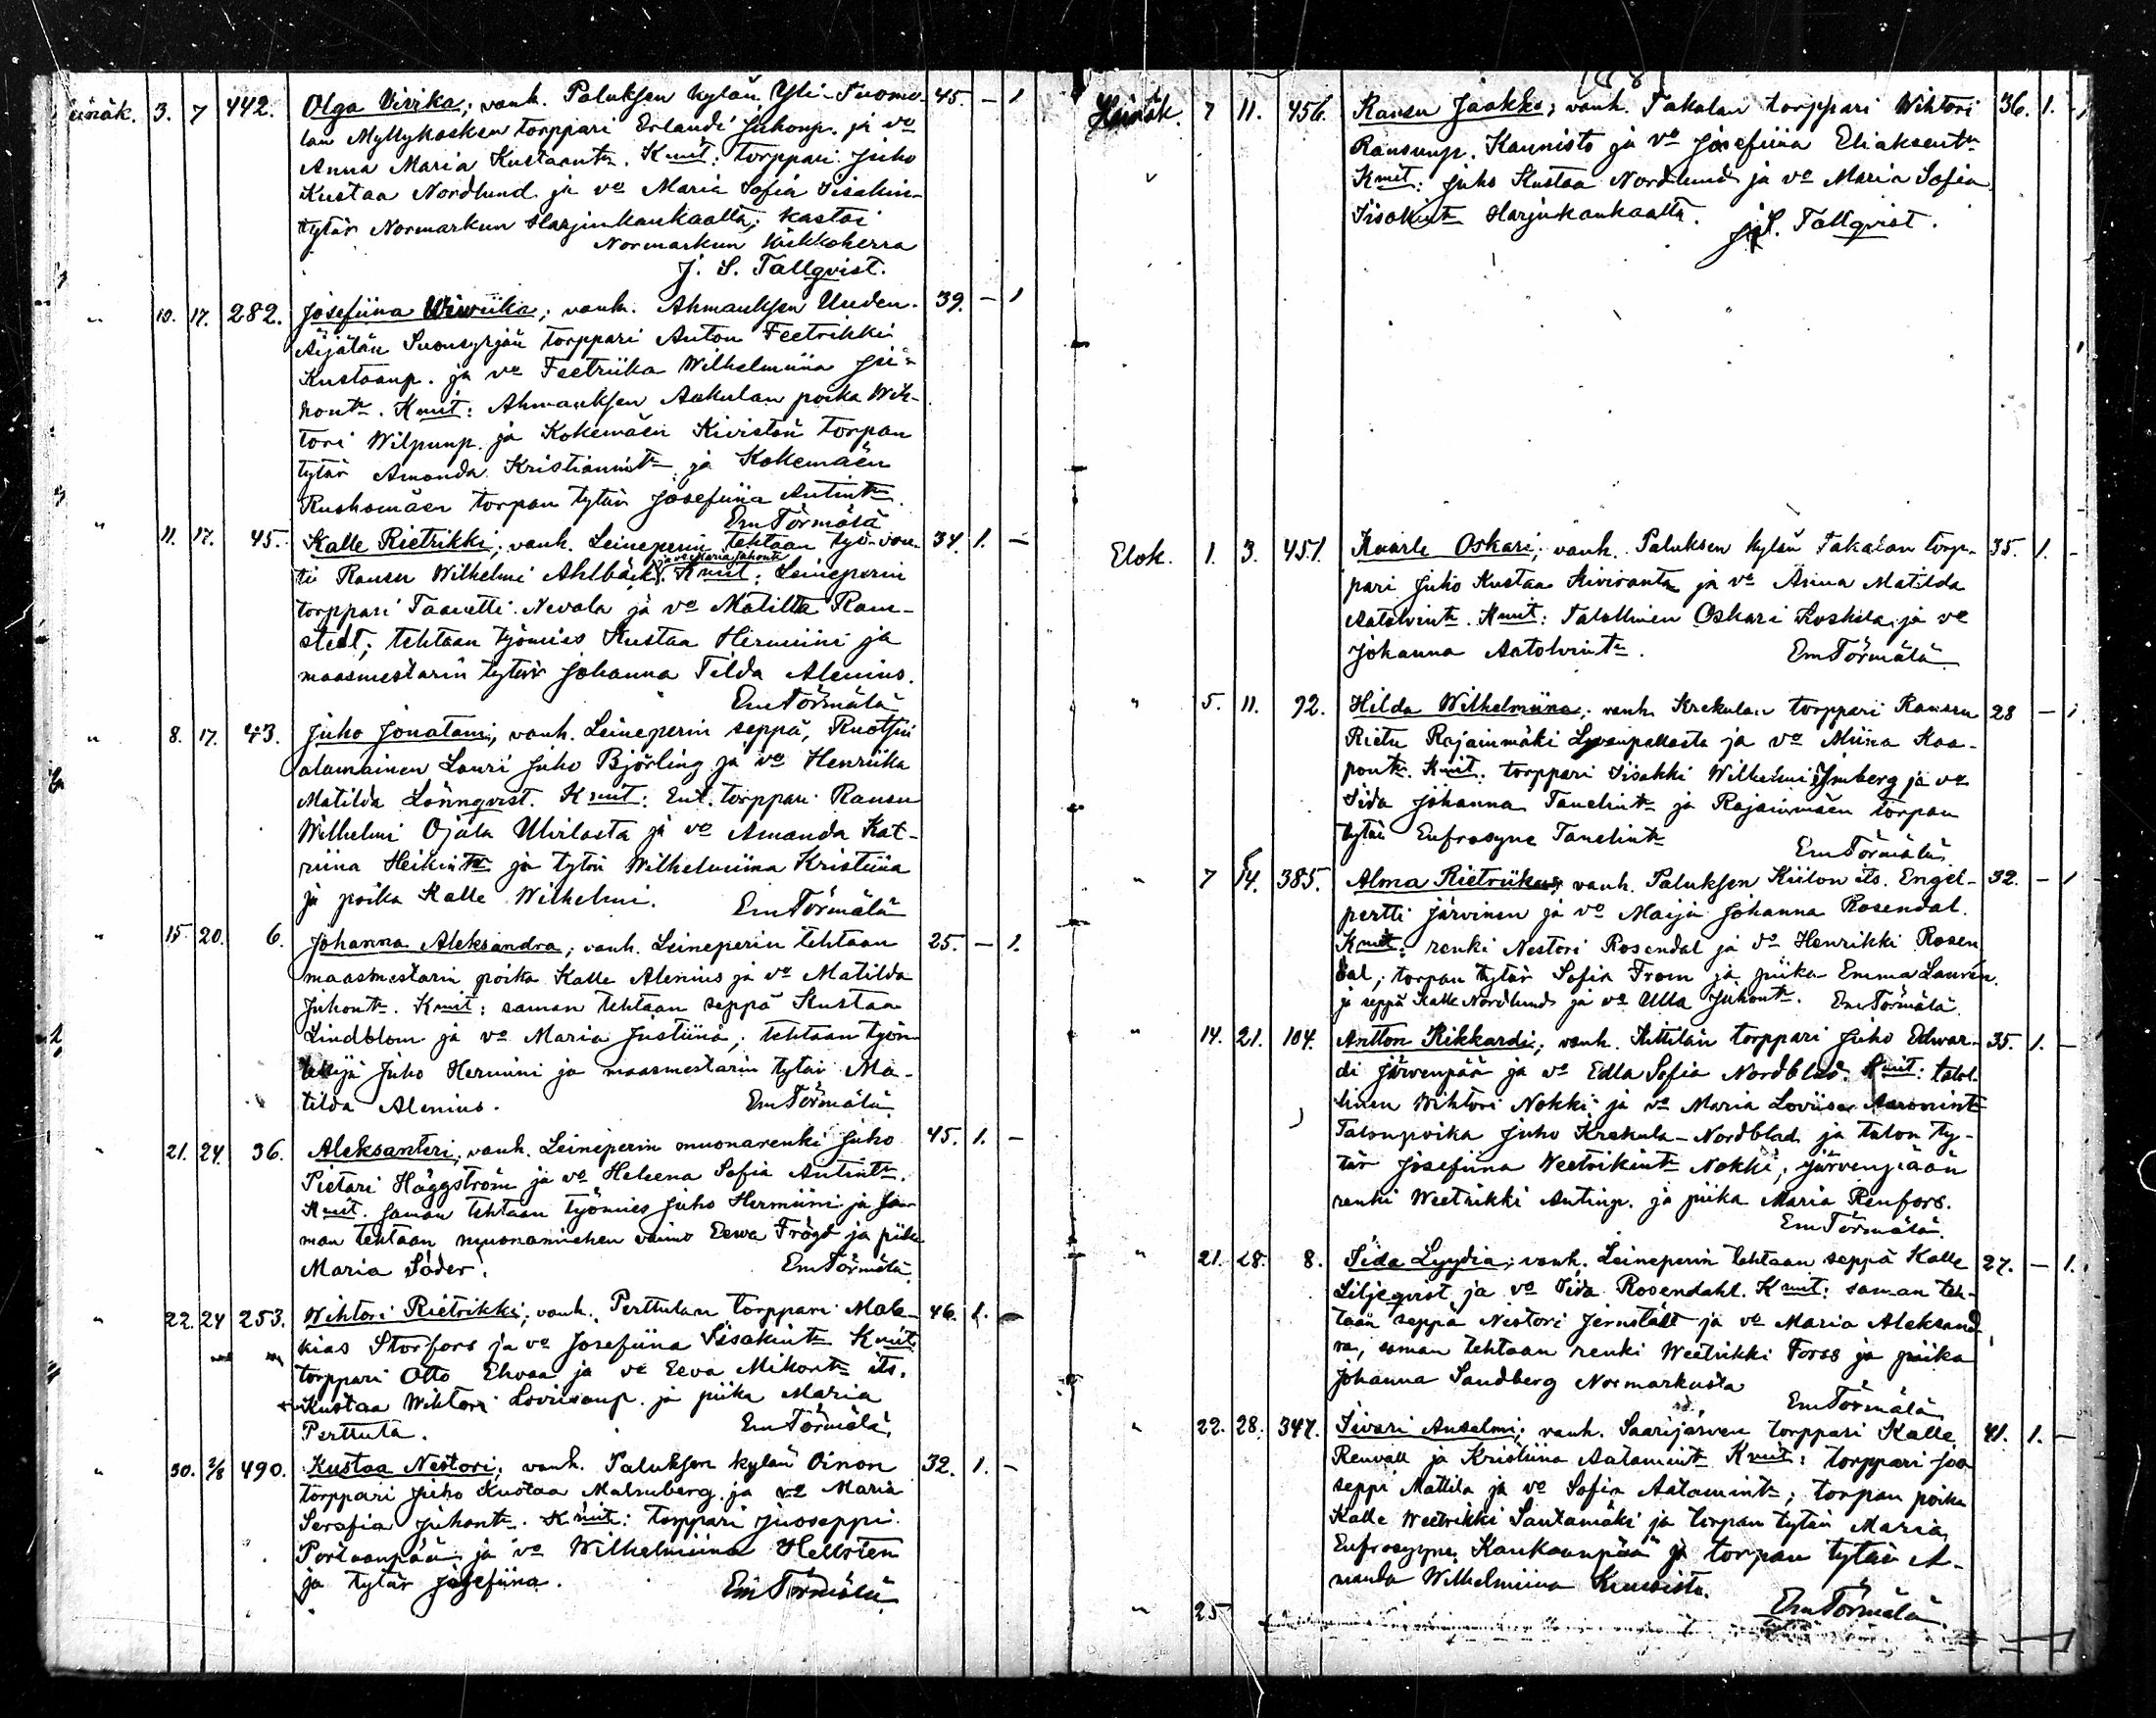 Heinäk. 3. 7 442. Olga Vivika; vanh. Paluksen kylän Yli-Tuomo- 45. – 1
lan Myllykosken torppari Erlandi Juhonp. ja vo
Anna Maria Kustaantr. Kmit: torppari Juho
Kustaa Nordlund ja vo Maria Sofia Iisakin-
tytär Normarkun Harjunkankaalta; kastoi
Normarkun kirkkoherra
J. S. Tallqvist.
" 10. 17. 282. Josefiina Wiwiika; vanh. Ahmauksen Uuden- 39. – 1
Äijälän Suonsyrjän torppari Anton Feetrikki
Kustaanp. ja vo Feetriika Wilhelmiina Ju-
hontr. Kmit: Ahmauksen Aakulan poika Wih-
tori Wilpunp. ja Kokemäen Kiviston torpan
tytär Amanda Kristianintr ja Kokemäen
Ruohomäen torpan tytär Josefiina Antintr.
Em Törmälä
" 11. 17. 45. Kalle Rietrikki; vanh. Leineperin tehtaan työ-vou- 34. 1. –
ja vo Maria Juhontr
ti Ransu Wilhelmi Ahlbäck. Kmit: Leineperin
torppari Taavetti Nevala ja vo Matilta Ram-
stedt; tehtaan työmies Kustaa Hermiini ja
maasmestarin tytär Johanna Tilda Alenius.
Em Törmälä
" 8. 17. 43. Juho Jonatani, vanh. Leineperin seppä, Ruotsin
alamainen Lauri Juho Björling ja vo Henriika
Matilda Lönnqvist. Kmit: Ent. torppari Ransu
Wilhelmi Ojala Ulvilasta ja vo Amanda Kat-
riina Heikintr ja tytär Wilhelmiina Kristiina
ja poika Kalle Wilhelmi. Em Törmälä
" 15. 20. 6. Johanna Aleksandra; vanh. Leineperin tehtaan 25. – 1.
maasmestarin poika Kalle Alenius ja vo Matilda
Juhontr. Kmit: saman tehtaan seppä Kustaa
Lindblom ja vo Maria Justiina; tehtaan työn-
tekijä Juho Hermiini ja maasmestarin tytär Ma-
tilda Alenius. Em Törmälä
" 21. 24. 36. Aleksanteri; vanh. Leineperin muonarenki Juho 45. 1. –
Pietari Häggström ja vo Helena Sofia Antintr.
Kmit. saman tehtaan työmies Juho Hermiini ja sa-
man tehtaan muonamiehen vaimo Eewa Frögd ja piika
Maria Söder. Em Törmälä
" 22. 24 253. Wihtori Rietrikki; vanh. Perttulan torppari Mala- 46. 1. –
kias Storfors ja vo Josefiina Iisakintr Kmit:
torppari Otto Ehvaa ja vo Eeva Mikontr its.
Kustaa Wihtori Loviisanp. ja piika Maria
Perttula. Em Törmälä
" 30. 2/8 490. Kustaa Nestori; vanh. Paluksen kylän Oinon 32. 1. –
torppari Juho Kustaa Malmberg ja vo Maria
Serafia Juhontr. Kmit: torppari Juoseppi
Portaanpää ja vo Wilhelmiina Hellsten
ja tytär Josefiina. Em Törmälä
1881
Heinäk. 7 11. 456. Ransu Jaakko; vanh. Takalan torppari Wihtori 36. 1. –
Ransunp. Kaunisto ja vo Josefiina Eliaksentr
Kmit: Juho Kustaa Nordlund ja vo Maria Sofia
Iisakintr Harjukankaalta. J. S. Tallqvist.
Elok. 1. 3. 451. Kaarle Oskari; vanh. Paluksen kylän Takalan torp- 35. 1. –
pari Juho Kustaa Kiviranta ja vo Anna Matilda
Aatolvintr. Kmit: Talollinen Oskari Koskela ja vo
Johanna Aatolvintr. Em Törmälä
" 5. 11. 92. Hilda Wilhelmiina; vanh. Krekulan torppari Ransu 28 – 1.
Rietu Rajainmäki ja vo Miina Kaa-
pontr. Kmit. torppari Iisakki Wilhelmi Ymberg ja vo
Iida Johanna Tanelintr ja Rajainmäen torpan
tytär Eufrosyne Tanelintr
Em Törmälä
" 7 14. 385. Alma Rietriika; vanh. Paluksen Kiilon its. Engel- 32. – 1
pertti Järvinen ja vo Maija Johanna Rosendal.
Kmit: renki Nestori Rosendal ja vo Henrikki Rosen
dal; torpan tytär Sofia From ja piika Emma Laurén.
ja seppä Kalle Nordlund ja vo Ulla Juhontr. Em Törmälä
" 14. 21. 104. Antton Rikkardi; vanh. Kittilän torppari Juho Edwar- 35. 1. –
di Järvenpää ja vo Edla Sofia Nordblad. Kmit: talol-
linen Wihtori Nokki ja vo Maria Loviisa Aaronintr
Talonpoika Juho Krekula-Nordblad ja talon ty-
tär Josefiina Weetrikintr Nokki; Järvenpään
renki Weetrikki Antinp. ja piika Maria Renfors.
Em Törmälä
" 21. 28. 8. Iida Lyydia; vanh. Leineperin tehtaan seppä Kalle 27. – 1.
Liljeqvist ja vo Iida Rosendahl. Kmit: saman teh-
taan seppä Nestori Jernstält ja vo Maria Aleksand
ra, saman tehtaan renki Weetrikki Forss ja piika
Johanna Sandberg Normarkusta
Em Törmälä
" 22. 28. 347. Iivari Anselmi; vanh. Saarijärven torppari Kalle 41. 1. –
Renvall ja Kristiina Aatamintr Kmit: torppari Joo
seppi Mattila ja vo Sofia Aatamintr; torpan poika
Kalle Weetrikki Santamäki ja torpan tytär Maria
Eufrosyyne Kankaanpää ja torpan tytär A-
manda Wilhelmiina Kuusisto.
Em Törmälä
" 25